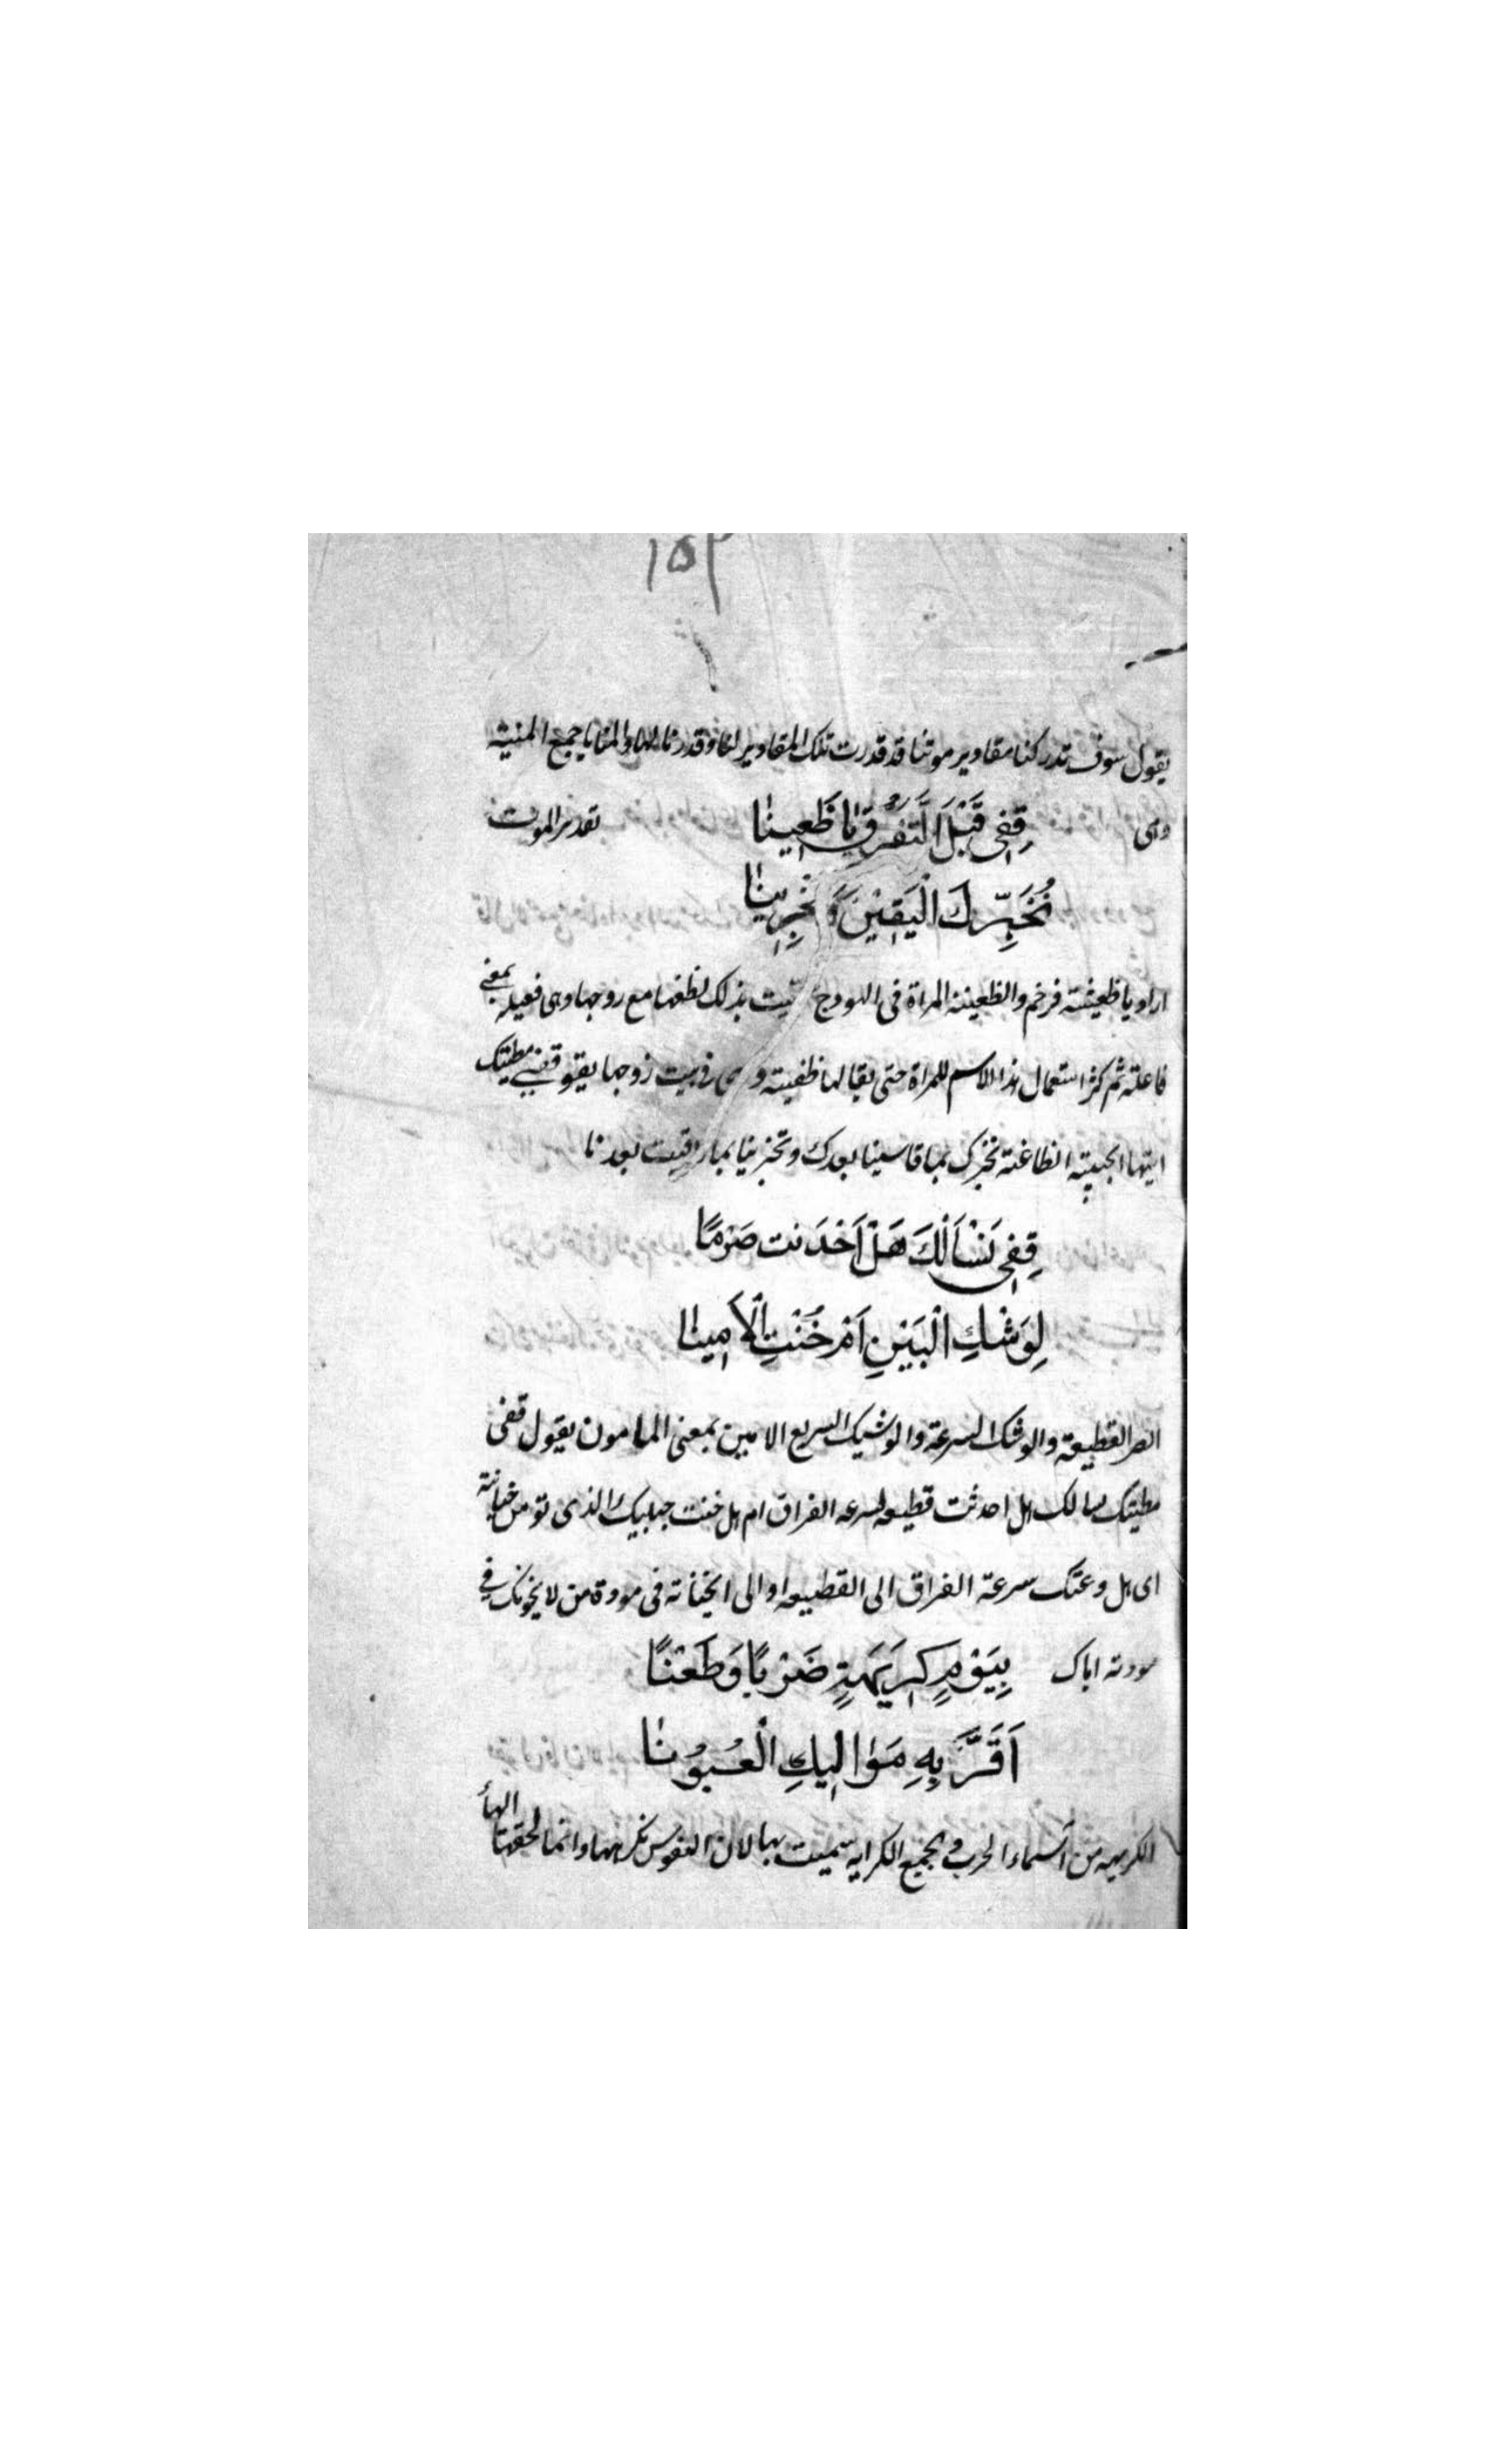 ١٥٣
يقول سوف تدركنا مقادير موتنا قد قدرت تلك المقادير لنا وقدرنا لها والمنايا جمع المنية
وهى قِفِى قَبْلَ التَّفَرُّقِ يَا ظَعِينَا تقدير الموت
نُخَبِّرْكِ الْيَقِيْنَ وَ تُخْبِرِيْنَا
اراد يا ظعينة فرخم والظعينة المراة فى الهودج سميت بذلك لظعنها مع زوجها وهى فعيلة بمعنى
فاعلة ثم كثر استعمال هذا الاسم للمراة حتى يقال لها ظعينة وهى فى بيت زوجها يقول قفى مطيتك
ايتها الحبيبة الظاعنة نخبرك بما قاسينا بعدك وتخبرينا بما لاقيت بعدنا
قِفِى نَسْأَلْكِ هَلْ اَحْدَثْتِ صَرْمًا
لِوَشْكِ الْبَيْنِ اَمْ خُنْتِ الْاَمِينَا
الصرم القطيعة والوشك السرعة والوشيك السريع الامين بمعنى المامون يقول قفى
مطيتك نسالك هل احدثت قطيعة لسرعة الفراق ام هل خنت حبيبك الذى تومن خيانته
اى هل دعتك سرعة الفراق الى القطيعه او الى الخيانة فى مودة من لا يخونك فى
مودته اياك بِيَوْمِ كَرِيهَةٍ ضَرْبًا وَطَعْنًا
اَقَرَّ بِهِ مَوَالِيكِ الْعُيُونَا
الكريهة من اسماء الحرب و الجمع الكرايه سميت بها لان النفوس تكرهها وانما لحقتها الهاء